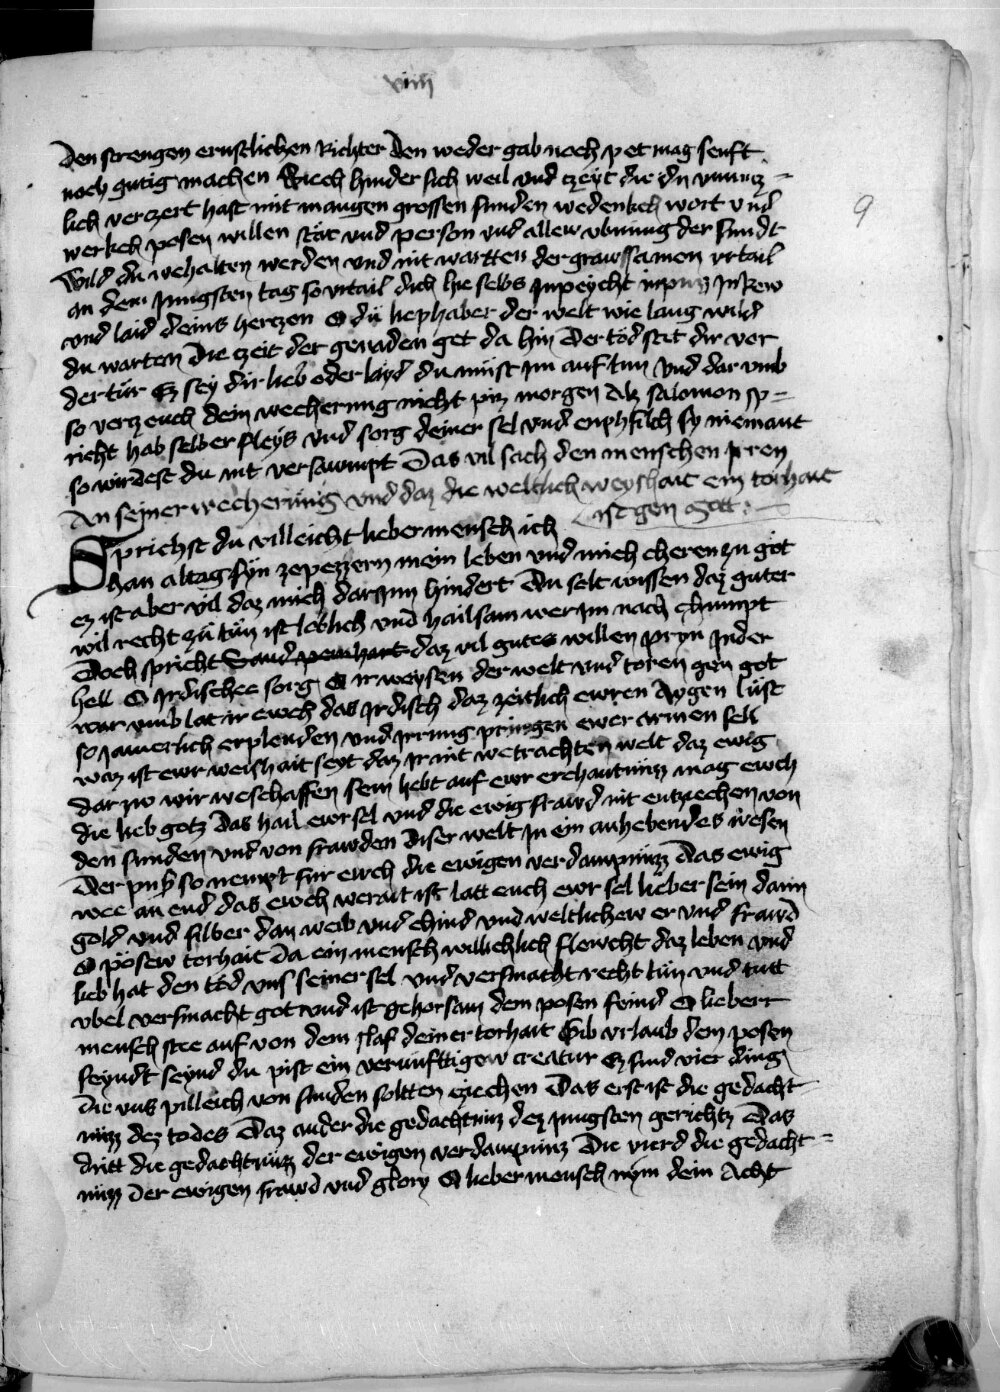 viiii
9
den strengen ernstlichen Richter Den weder gab noch pet mag senft
noch gutig machen Siech hinder sich weil vnd czeyt die du vnnucz =
lich verczert hast mit mangen grossen sunden wedenkch wort vnd
werkch posen willen stat vnd person vnd allew vbnung der sundt
Wild du wehalten werden vnd nit wartten der grawssamen vrtail
an dem jungsten tag so vrtail dich hie selbs jnpeycht inpuzz jn rew
vnd laid deins herczen O du liephaber der welt wie lang wild
du warten Die czeit der genaden get da hin Der töd stet dir vor
der tür Ez sey dir lieb oder layd du müst jm auf tun Vnd dar vmb
so verczeuch dein wecherung nicht piz morgen Alz Salomon sp =
richt hab selber fleyss vnd sorg deiner sel vnd enphilch sy niemant
so wirdest du nit versawmpt Das vil sach den menschen jrren
An seiner wecherung vnd daz die weltlich weyshait ein torhait
ist gen got
Sprichst du villeicht lieber mensch ich
han altag syn zepezzern mein leben vnd mich cheren zu got
ez ist aber vil daz mich dar jnn hindert Du solt wissen daz guter
wil recht zu tün ist loblich vnd hailsam wer jm nach chumpt
Doch spricht Sand pernhart daz vil gutes willen pryn jnder
hell O jrdischee sorg O ir weysen der welt vnd toren gen got
war vmb lat ir ewch das jrdisch daz zeitlich ewren Aygen lüst
so jamerlich erplenden vnd jrrung pringen ewer armen sell
waz ist ewr weishait seyt daz jr nit wetrachten welt daz ewig
dar zw wir weschaffen sein hebt auf ewr erchantnüzz mag ewch
die lieb gotz Das hail ewr sel vnd die ewig frawd nit enczichen von
den sunden vnd von frawden Diser welt jn ein anhebendes wesen
Der puß so nempt für ewch die ewigen verdampnüzz Das ewig
wee an end das ewch werait ist latt euch ewr sel lieber sein dann
gold vnd silber dan weib vnd chind vnd weltlichew er vnd frawd
O pösew torhait Da ein mensch willichlich flewcht daz leben vnd
lieb hat den töd vns seiner sel vnd versmacht recht tün vnd tutt
vbel versmacht got vnd ist gehorsam dem posen feind O lieber
mensch stee auf von dem slaf deiner torhait Gib vrlaub dem posen
feyndt seynd du pist ein vernunfttigew creatur Ez sind vier ding
Die vns pilleich von sunden soltten cziechen Das erst ist die gedacht
nüzz dez todes Daz ander die gedachtnüz dez jungsten gerichtz Das
dritt die gedachtnüzz der ewigen verdampnüz Die vierd die gedacht =
nüzz Der ewigen frawd vnd glory O lieber mensch nym dein Acht